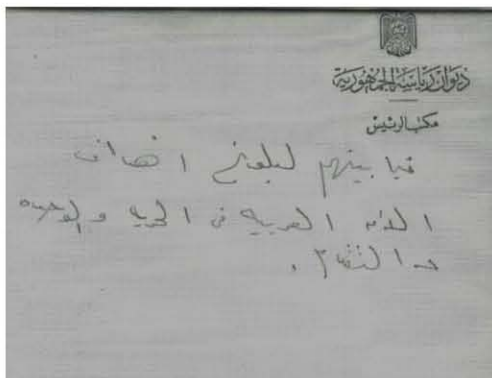 ديوان رياسة الجمهورية
مكتب الرئيس
فيما بينهم لبلوغ اهداف
الامه العربيه في الحريه والوحده
و